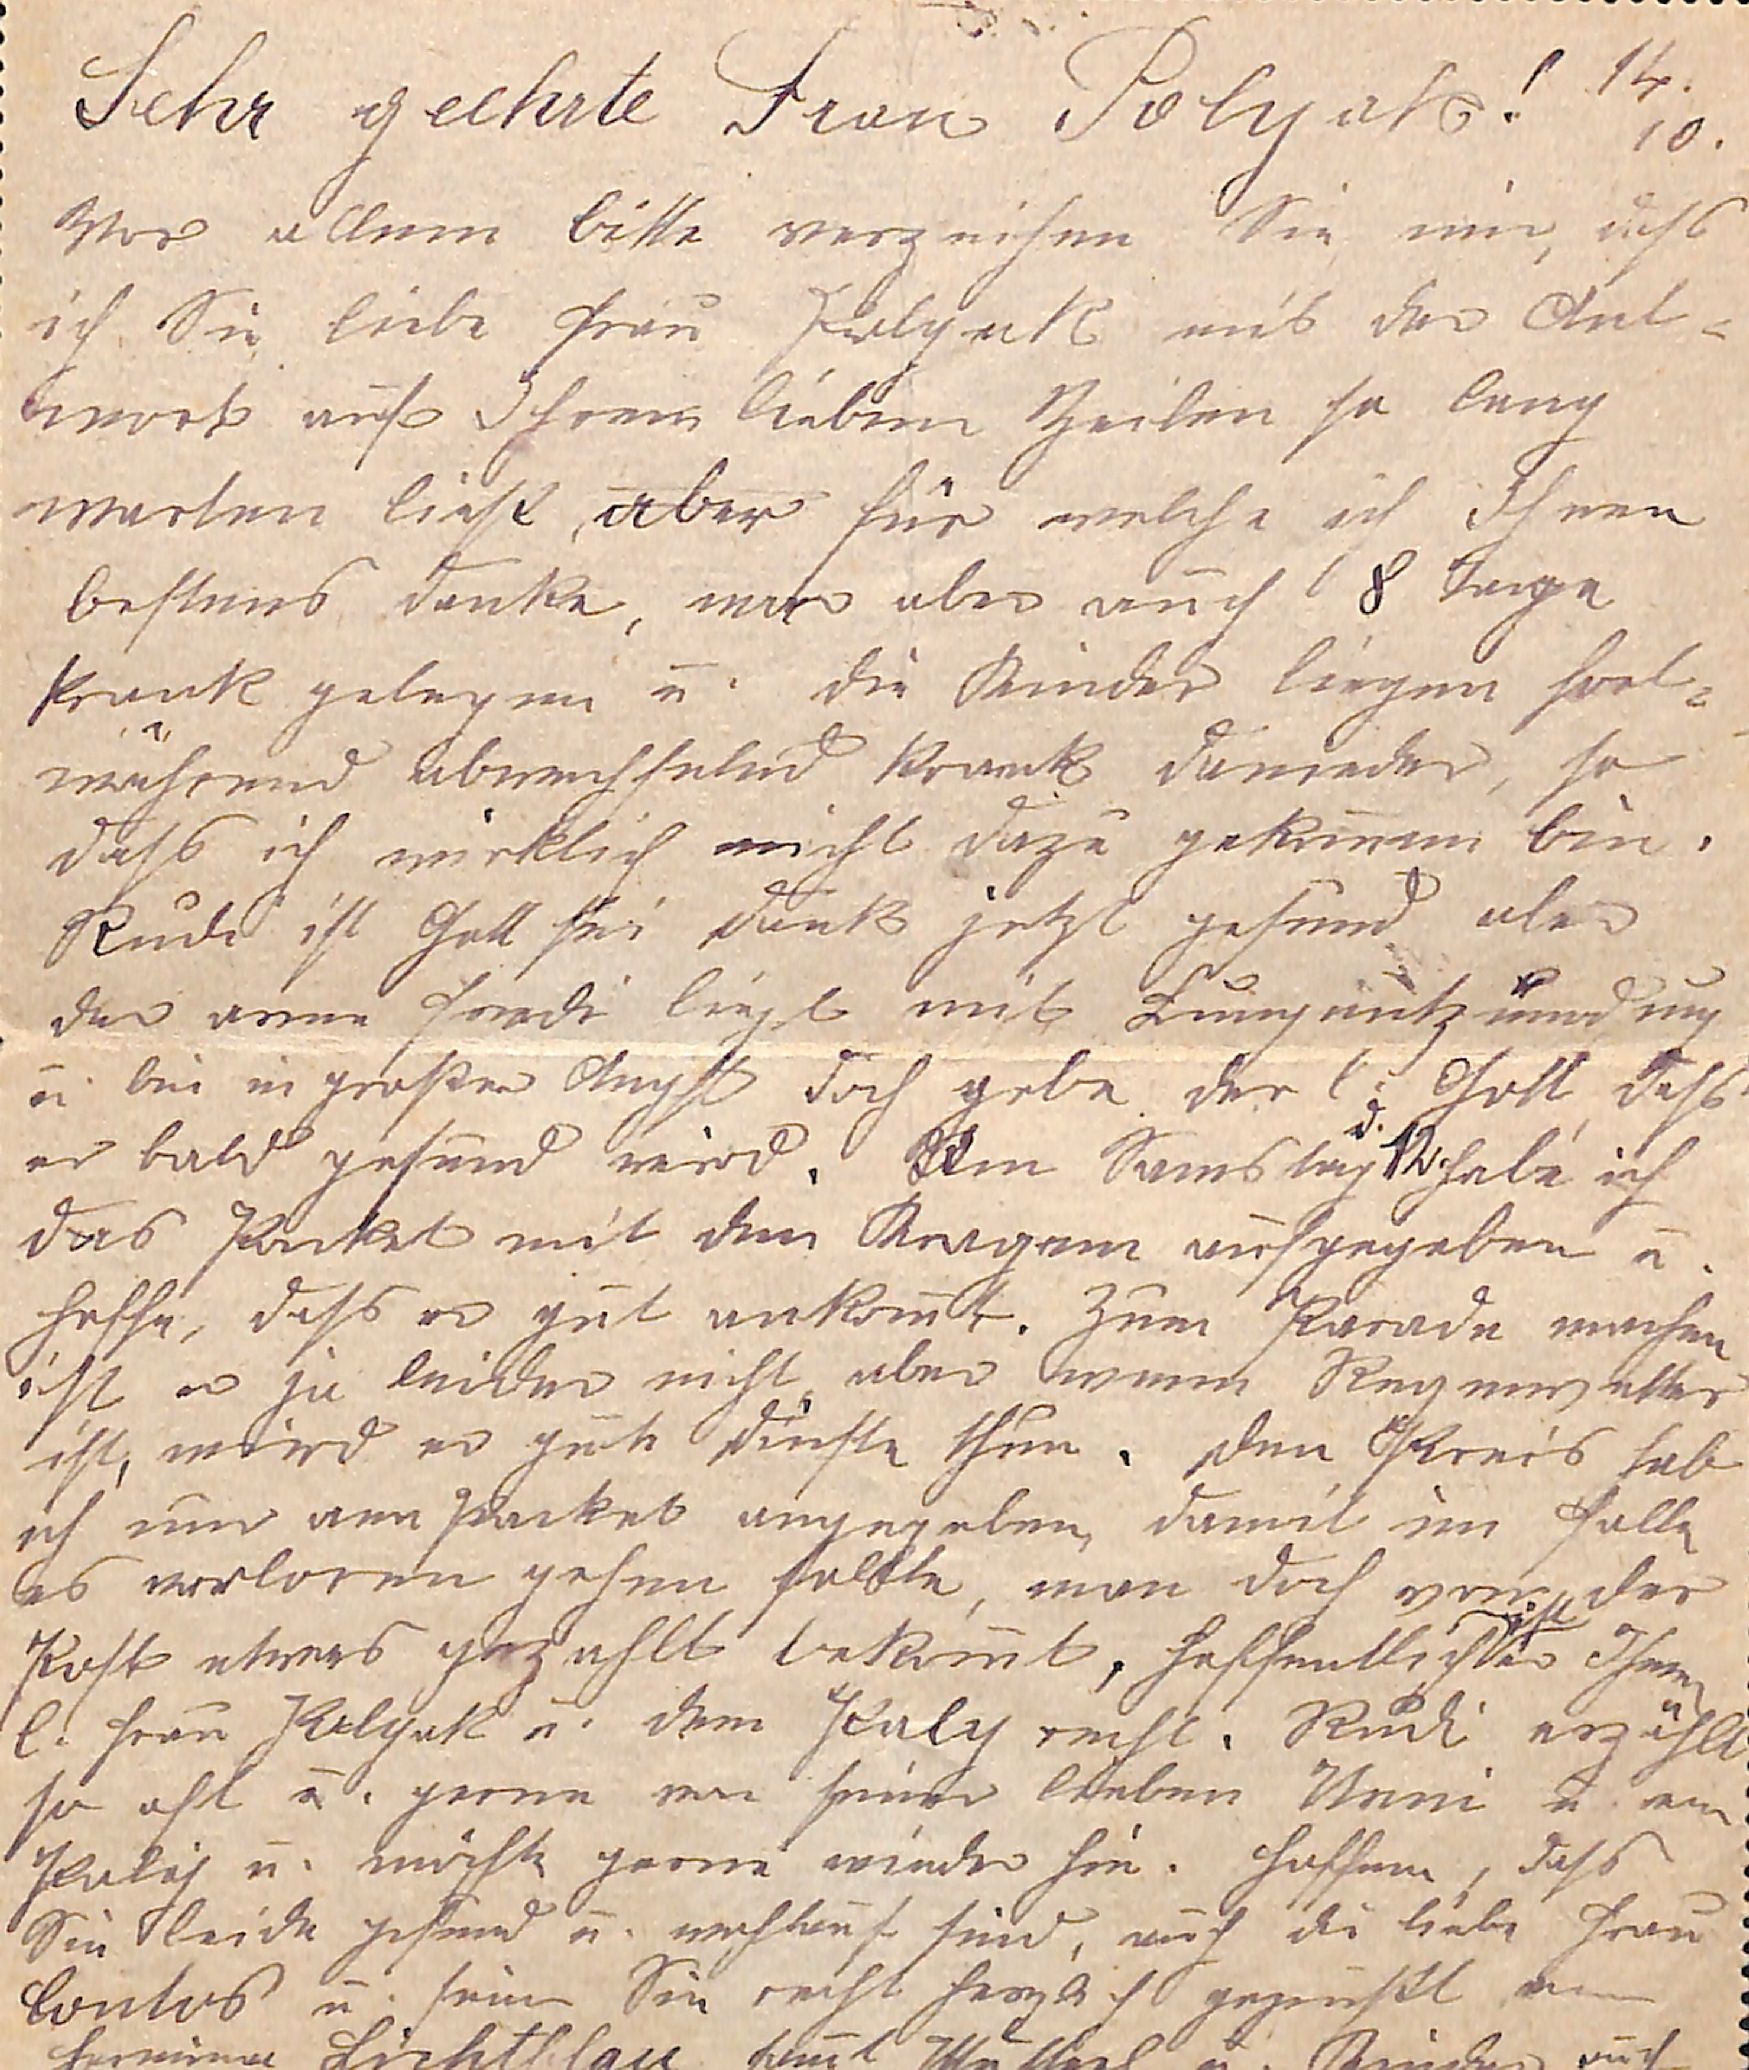 Sehr geehrte Frau Polyak! 14.
10.
Vor allem bitte verzeihen Sie mir, dass
ich Sie liebe Frau Polyak mit der Ant-
wort auf Ihren lieben Zeilen so lang
warten ließ, aber für welche ich Ihnen
bestens danke, war aber auch 8 Tage
krank gelegen u. die Kinder liegen fort-
während abwechselnd krank danieder, so
dass ich wirklich nicht dazu gekom̄en bin.
Rudi ist Gott sei Dank jetzt gesund aber
der arme Fredi liegt mit Lungentzündung
u. bin in großer Angst doch gebe der l. Gott, dass
er bald gesund wird. Am Samstag d. 12. habe ich
das Packet mit dem Kragen aufgegeben u.
hoffe, dass er gut ankom̄t. Zum Parade machen
ist er ja leider nicht, aber wenn Regenwetter
ist, wird er gute Dienste thun. Den Preis hab
ich nur am Packet angegeben, damit im Falle
es verloren gehen sollte, man doch von der
Post etwas gezahlt bekom̄t, hoffentlich ist er Ihnen
l. Frau Polyak u. dem Paly recht. Rudi erzählt
so oft u. gerne von seiner lieben Neni u. von
Paly u. möchte gerne wieder hin. Hoffen, dass
Sie beide gesund u. wohlauf sind, auch die liebe Frau
Contos u. seien Sie recht herzlich gegrüßt von
Hermine Lichtblau samt Mutter u. Kinder auch